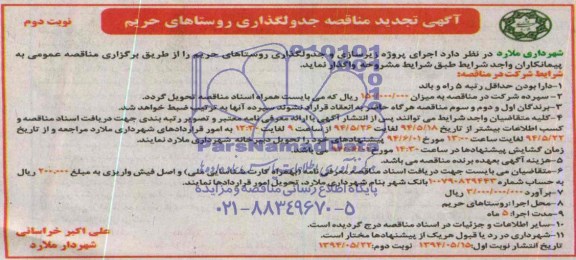 آگهی تجدید مناقصه جدولگذاری روستاهای حریم
نوبت دوم
شهرداری ملارد در نظر دارد اجرای پروژه زیرسازی و جدولگذاری روستاهای حریم را از طریق برگزاری مناقصه عمومی به
پیمانکاران واجد شرایط طبق شرایط مشروحه واگذار نماید.
شرایط شرکت در مناقصه:
۱-دارا بودن حداقل رتبه ۵ راه و باند
۲- سپرده شرکت در مناقصه به میزان ریال که می بایست همراه اسناد مناقصه تحویل گردد.
۳-برندگان اول و دوم و سوم مناقصه هرگاه حاضر به انعقاد قرارداد نشوند سپرده آنها به ترتیب ضبط خواهد شد.
۴-کلیه متقاضیان واجد شرایط می توانند پس از انتشار آگهی با ارائه معرفی نامه معتبر و تصویر رتبه بندی جهت دریافت اسناد مناقصه و
کسب اطلاعات بیشتر از تاریخ ۹۴/۵/۱۸ لغایت از ساعت ۹ لغایت به امور قراردادهای شهرداری ملارد مراجعه و از تاریخ
لغایت ساعت ۱۳:۰۰ مورخ پیشنهادهای خود را تحویل دبیرخانه شهرداری ملارد نمایند.
زمان گشایش پیشنهادها در ساعت ۱۴:۳۰ مورخ می باشد.
۵-هزینه آگهی بعهده برنده مناقصه می باشد.
۶-متقاضیان می بایست جهت دریافت اسناد مناقصه معرفی نامه (بهمراه کارت شناسائی ملی) و اصل فیش واریزی به مبلغ ریال
به حساب شماره ۱۰۰۷۹۰۸۲۹۴۴۳ بانک شهر بنام شهرداری ملارد، تحویل امور قراردادها نمایند.
۷-برآورد ۳/۰۰۰/۰۰۰/۰۰۰ ریال
۸-محل اجرا: روستاهای حریم
۹-مدت اجرا: ۵ ماه
۱۰-سایر اطلاعات و جزئیات در اسناد مناقصه درج گردیده است.
۱۱-شهرداری در رد یا قبول هریک از پیشنهادها مختار است.
تاریخ انتشار نوبت اول: ۱۳۹۴/۰۵/۱۵ نوبت دوم: ۱۳۹۴/۰۵/۲۲
علی اکبر خراسانی
شهردار ملارد
ParsNamadData
پایگاه اطلاع رسانی مناقصه و مزایده
۰۲۱-۸۸۳۴۹۶۷۰-۵